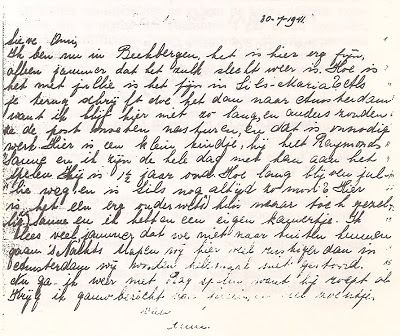 30-7-1941
Lieve Omi,
Ik ben nu in Beekbergen, het is hier erg fijn,
alleen jammer dat het zulk slecht weer is. Hoe is
het met jullie is het fijn in Sils-Maria? Als
je terug schrijft doe het dan naar Amsterdam
want ik blijf hier niet zo lang, en anders zouden
ze de post moeten nasturen, en dat is onnodig
werk. Hier is een klein kindje, hij heet Raymond
Sanne en ik zijn de hele dag met hem aan het
spelen. Hij is 1½ jaar oud. Hoe lang blijven jul-
lie weg en is Sils nog altijd zo mooi? Hier
is het een erg ouderwets huis maar toch gezel-
lig, Sanne en ik hebben een eigen kamertje. Ik
lees veel, jammer dat we niet naar buiten kunnen
gaan. 's Nachts slapen wij hier veel rustiger dan in
Amsterdam wij worden helemaal niet gestoord.
Nu ga ik weer met Ray spelen, want hij roept al
Krijg ik gauw bericht van
Anne.